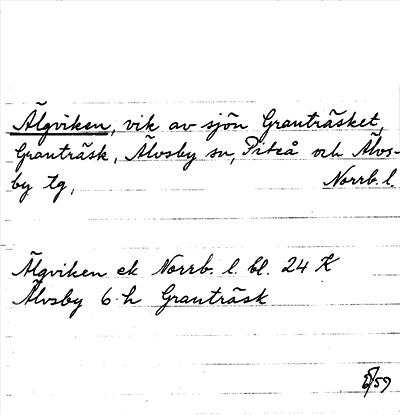 Älgviken, vik av sjön Granträsket,
Granträsk, Älvsby sn, Piteå och Älvs-
by tg, Norrb. l.
Älgviken ek Norrb. l. bl. 24 K
Älvsby 6 h Granträsk
/59